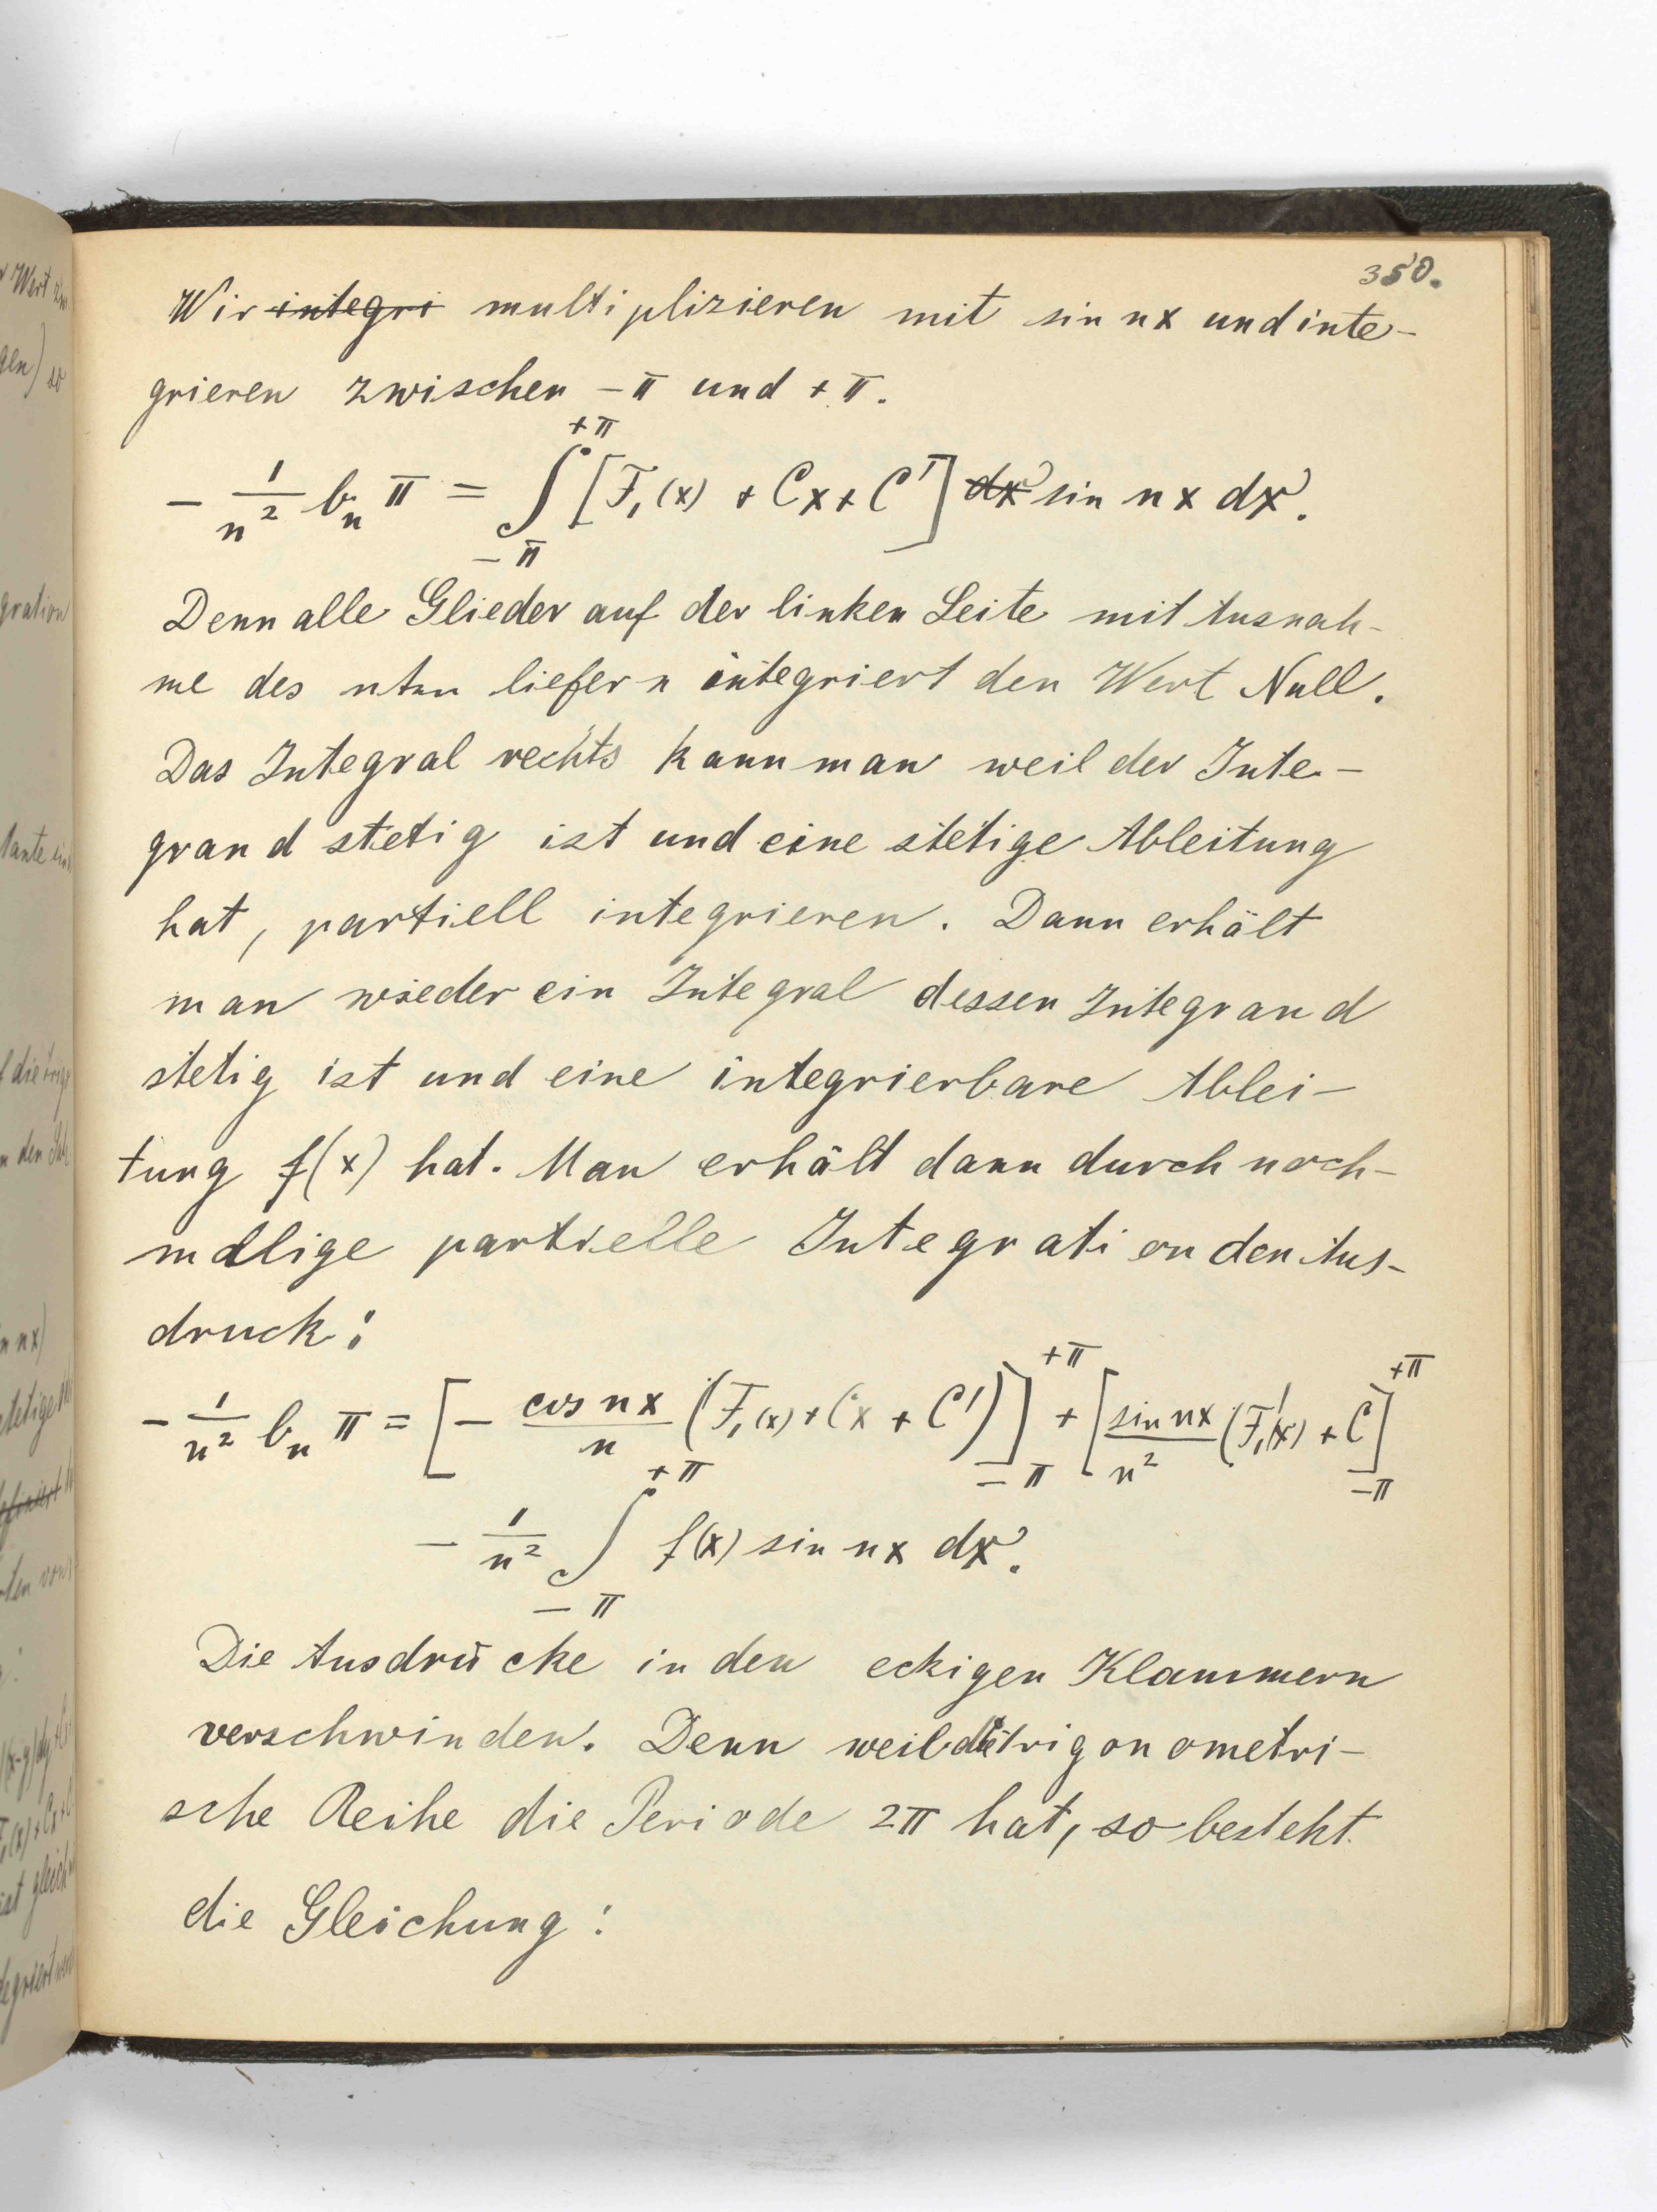 350.
Wir integri multiplizieren mit sin nx und inte-
grieren zwischen -π und +π.
- 1/n² bₙ π = ∫_{-π}^{+π} [F₁(x) + Cx + C'] dx sin nx dx.
Denn alle Glieder auf der linken Seite mit Ausnah-
me des nten liefern integriert den Wert Null.
Das Integral rechts kann man weil der Inte-
grand stetig ist und eine stetige Ableitung
hat, partiell integrieren. Dann erhält
man wieder ein Integral dessen Integrand
stetig ist und eine integrierbare Ablei-
tung f(x) hat. Man erhält dann durch noch-
mallige partielle Integration den Aus-
druck:
- 1/n² bₙ π = [- cos nx/n (F₁(x) + Cx + C')]_{-π}^{+π} + [sin nx/n² (F₁'(x) + C]_{-π}^{+π}
- 1/n² ∫_{-π}^{+π} f(x) sin nx dx.
Die Ausdrücke in den eckigen Klammern
verschwinden. Denn weil die trigonometri-
sche Reihe die Periode 2π hat, so besteht
die Gleichung: